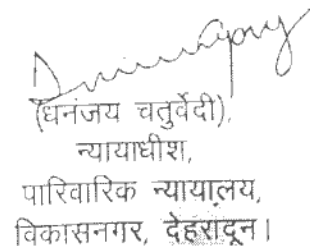 (धनंजय चतुर्वेदी),
न्यायाधीश,
पारिवारिक न्यायालय,
विकासनगर, देहरादून।